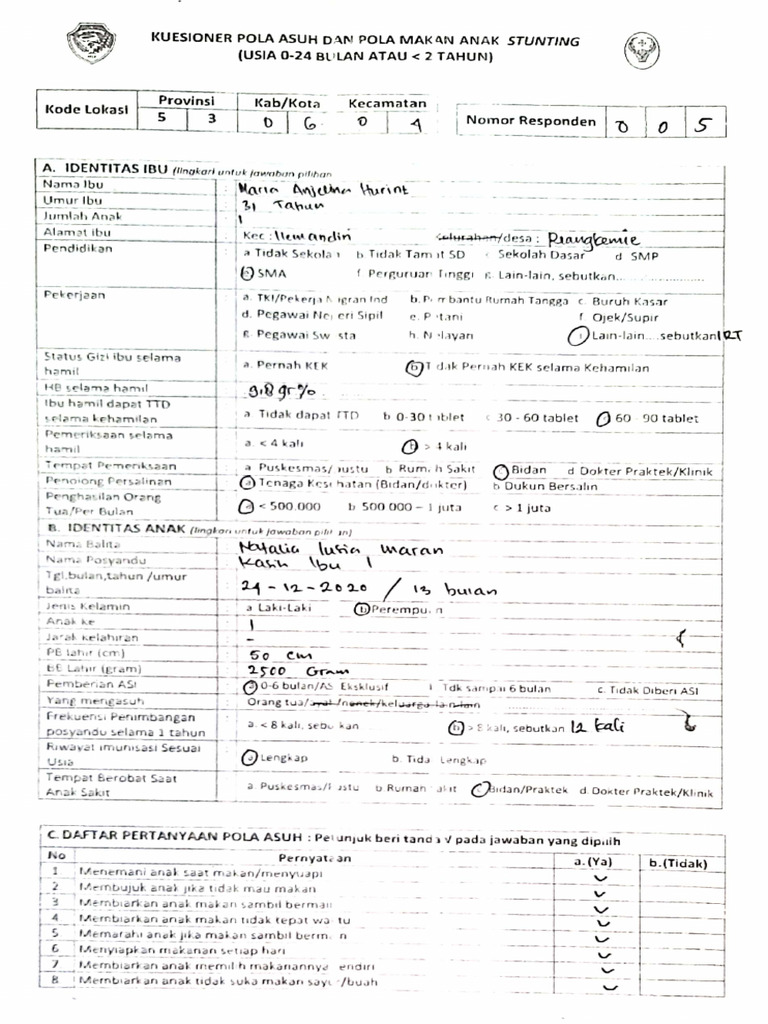 KUESIONER POLA ASUH DAN POLA MAKAN ANAK STUNTING
(USIA 0-24 BULAN ATAU < 2 TAHUN)
Kode Lokasi Provinsi Kab/Kota Kecamatan Nomor Responden 0 0 5
5 3 0 6 0 4
A. IDENTITAS IBU (lingkari untuk jawaban pilihan
Nama Ibu : Maria Anjelina Hurint
Umur Ibu : 31 Tahun
Jumlah Anak : 1
Alamat ibu : Kec : Ilemandiri kelurahan/desa : Riangkemie
Pendidikan : a Tidak Sekola b Tidak Tam t SD c Sekolah Dasar d SMP
e SMA f Perguruan Tinggi g. Lain-lain, sebutkan....................
Pekerjaan : a. TKI/Pekerja Migran Ind b. Pembantu Rumah Tangga c. Buruh Kasar
d. Pegawai Negeri Sipil e. Petani f. Ojek/Supir
g. Pegawai Swasta h. Nelayan i Lain-lain....sebutkan IRT
Status Gizi ibu selama hamil : a. Pernah KEK b Tidak Pernah KEK selama Kehamilan
HB selama hamil : 9,8 gr%
Ibu hamil dapat TTD selama kehamilan : a. Tidak dapat TTD b 0-30 tablet c 30 - 60 tablet d 60 - 90 tablet
Pemeriksaan selama hamil : a. < 4 kali b > 4 kali
Tempat Pemeriksaan : a Puskesmas/Pustu b Rumah Sakit c Bidan d Dokter Praktek/Klinik
Penolong Persalinan : a Tenaga Kesehatan (Bidan/dokter) b Dukun Bersalin
Penghasilan Orang Tua/Per Bulan : a < 500.000 b 500 000 - 1 juta c > 1 juta
B. IDENTITAS ANAK (lingkari untuk jawaban pilihan)
Nama Balita : Natalia lusia maran
Nama Posyandu : Kasih Ibu 1
Tgl,bulan,tahun /umur balita : 24-12-2020 / 13 bulan
Jenis Kelamin : a Laki-Laki b Perempuan
Anak ke : 1
Jarak kelahiran : -
PB lahir (cm) : 50 cm
BB Lahir (gram) : 2500 Gram
Pemberian ASI : a 0-6 bulan/ASI Eksklusif Tdk sampai 6 bulan c. Tidak Diberi ASI
Yang mengasuh : Orang tua/ayat /nenek/keluarga lain lain
Frekuensi Penimbangan posyandu selama 1 tahun : a. < 8 kali, sebutkan b > 8 kali, sebutkan 12 kali
Riwayat imunisasi Sesuai Usia : a Lengkap b. Tidak Lengkap
Tempat Berobat Saat Anak Sakit : a. Puskesmas/Pustu b Rumah Sakit c Bidan/Praktek d. Dokter Praktek/Klinik
C. DAFTAR PERTANYAAN POLA ASUH : Petunjuk beri tanda √ pada jawaban yang dipilih
No Pernyataan a.(Ya) b.(Tidak)
1 Menemani anak saat makan/menyuapi ✓
2 Membujuk anak jika tidak mau makan ✓
3 Membiarkan anak makan sambil bermain ✓
4 Membiarkan anak makan tidak tepat waktu ✓
5 Memarahi anak jika makan sambil bermain ✓
6 Menyiapkan makanan setiap hari ✓
7 Membiarkan anak memilih makanannya sendiri ✓
8 Membiarkan anak tidak suka makan sayur/buah ✓